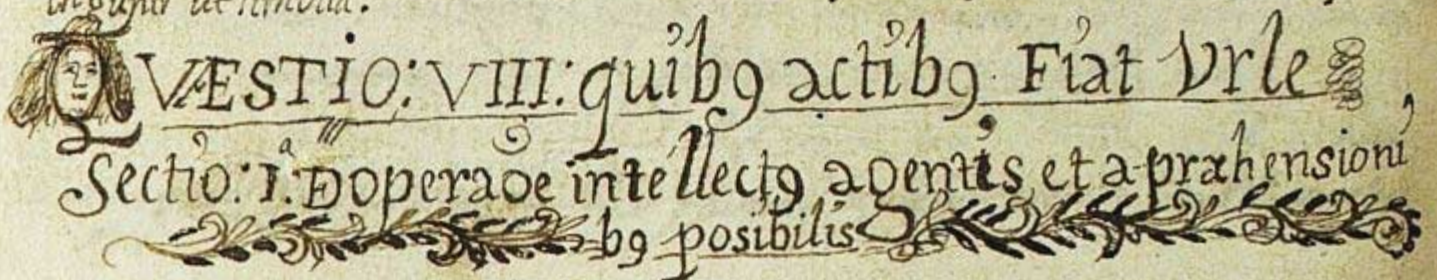 QVÆSTIO: VIII: quibꝯ actibꝯ Fiat Vrle
Sectio: 1.ª D operaōe intellectꝯ agentis et a-præhensioni,
bꝯ posibilis